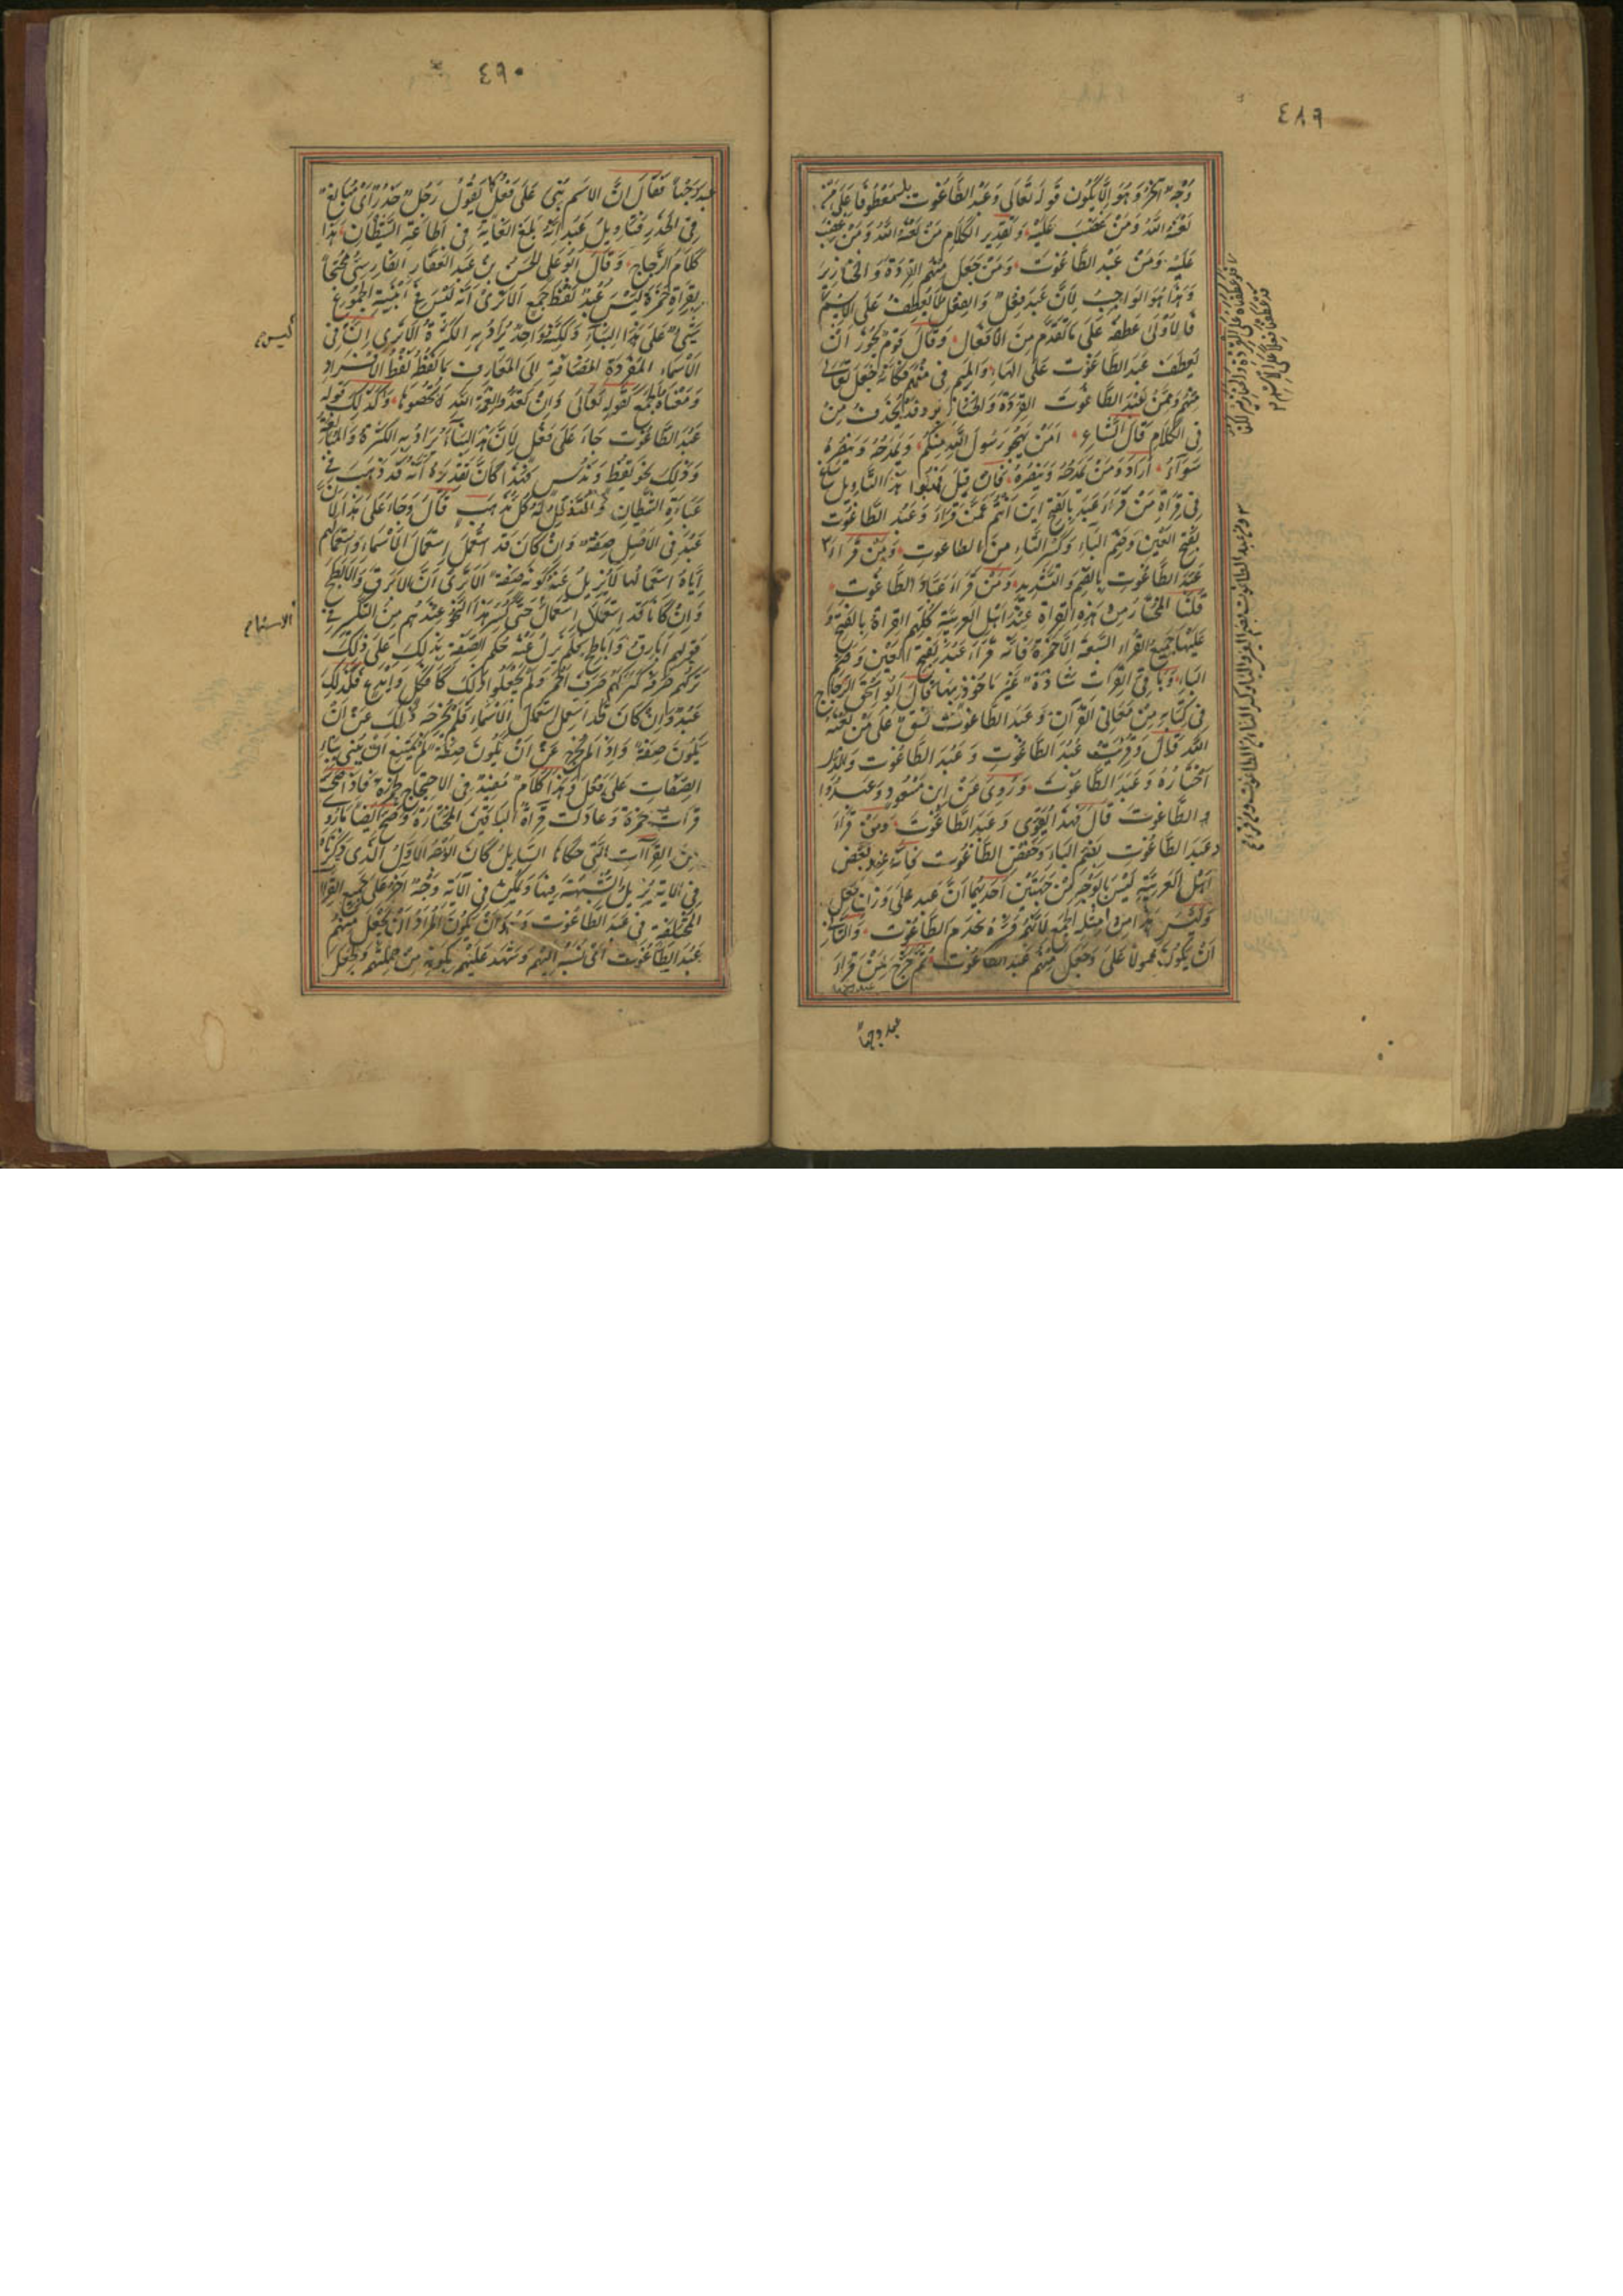 ٤٨٩
وَجْهٌ آخَرُ وَهُوَ اَلَّا يَكُونَ قَولُهُ تَعَالَى وَعَبَدَ الطَّاغُوتَ مَعْطُوفًا عَلَى مَنْ
لَعَنَهُ اللهُ وَمَنْ غَضِبَ عَلَيْهِ وَتَقْدِيرُ الكَلَامِ مَنْ لَعَنَهُ اللهُ وَمَنْ غَضِبَ
عَلَيْهِ وَمَنْ عَبَدَ الطَّاغُوتَ وَمَنْ جَعَلَ مِنْهُمُ القِرَدَةَ وَالخَنَازِيرَ
وَهَذَا هُوَ الوَاجِبُ لِاَنَّ عَبَدَ فِعْلٌ وَالفِعْلُ لَا يُعْطَفُ عَلَى الاِسْمِ
فَالاَوْلَى عَطْفُهُ عَلَى مَا تَقَدَّمَ مِنَ الاَفْعَالِ وَقَالَ قَوْمٌ يَجُوزُ اَنْ
يُعْطَفَ عَبَدَ الطَّاغُوتَ عَلَى الهَاءِ وَالمِيمِ فِى مِنْهُمْ فَكَاَنَّهُ جَعَلَ تَعَالَى
مِنْهُمْ وَمِمَّنْ عَبَدَ الطَّاغُوتَ القِرَدَةَ وَالخَنَازِيرَ وَقَدْ يُحْذَفُ مَنْ
فِى الكَلَامِ قَالَ الشَّاعِرُ اَمَنْ يَهْجُو رَسُولَ اللهِ مِنْكُمْ وَيَمْدَحُهُ وَيَنْصُرُهُ
سَوَاءُ اَرَادَ وَمَنْ يَمْدَحُهُ وَيَنْصُرُهُ فَاِنْ قِيلَ فَهَبُوا هَذَا التَّاْوِيلَ سَاغَ
فِى قِرَاءَةِ مَنْ قَرَاَ عَبَدَ بِالفَتْحِ اَيْنَ اَنْتُمْ عَمَّنْ قَرَاَ وَعَبُدَ الطَّاغُوتِ
بِفَتْحِ العَيْنِ وَضَمِّ البَاءِ وَكَسْرِ التَّاءِ مِنَ الطَّاغُوتِ وَمَنْ قَرَاَ
عُبَّدَ الطَّاغُوتِ بِالضَّمِّ وَالتَّشْدِيدِ وَمَنْ قَرَاَ عُبَّادَ الطَّاغُوتِ
قُلْنَا المُخْتَارُ مِنْ هَذِهِ القِرَاءَةِ عِنْدَ اَهْلِ العَرَبِيَّةِ كُلِّهِمُ القِرَاءَةُ بِالفَتْحِ وَ
عَلَيْهَا جَمِيعُ القُرَّاءِ السَّبْعَةِ اِلَّا حَمْزَةَ فَاِنَّهُ قَرَاَ عَبُدَ بِفَتْحِ العَيْنِ وَضَمِّ
البَاءِ وَبَاقِى القِرَاءَاتِ شَاذَّةٌ غَيْرُ مَاخُوذٍ بِهَا قَالَ اَبُو اِسْحَقَ الزَّجَّاجُ
فِى كِتَابِهِ مِنْ مَعَانِى القُرْآنِ وَعَبَدَ الطَّاغُوتَ نَسَقٌ عَلَى مَنْ لَعَنَهُ
اللهُ قَالَ وَقُرِئَتْ عَبُدَ الطَّاغُوتِ وَعَبُدَ الطَّاغُوتِ وَالَّذِى
اَخْتَارُهُ وَعَبَدَ الطَّاغُوتَ وَرُوِىَ عَنْ ابْنِ مَسْعُودٍ وَعَبَدُوا
الطَّاغُوتَ قَالَ فَهَذَا يُقَوِّى وَعَبَدَ الطَّاغُوتَ وَمَنْ قَرَاَ
وَعَبُدَ الطَّاغُوتِ بِضَمِّ البَاءِ وَخَفْضِ الطَّاغُوتِ فَاِنَّهُ عِنْدَ بَعْضِ
اَهْلِ العَرَبِيَّةِ لَيْسَ بِالوَجْهِ مِنْ جِهَتَيْنِ اَحَدُهُمَا اَنَّ عَبُدَ عَلَى وَزْنِ فَعُلٍ
وَلَيْسَ هَذَا مِنْ اَمْثِلَةِ الجَمْعِ لِاَنَّهُمْ فَسَّرُوهُ بِخَدَمِ الطَّاغُوتِ وَالثَّانِى
اَنْ يَكُونَ مَحْمُولًا عَلَى وَجَعَلَ مِنْهُمْ عَبُدَ الطَّاغُوتِ ثُمَّ خَرَّجَ لِمَنْ قَرَاَ
عبد وجها
٤٩٠
عبد وَجْهًا فَقَالَ اِنَّ الاِسْمَ بُنِىَ عَلَى فَعُلٍ كَمَا يَقُولُ رَجُلٌ حَذُرٌ اَىْ مُبَالِغٌ
فِى الحَذَرِ فَتَاْوِيلُ عَبُدَ اَنَّهُ بَلَغَ الغَايَةَ فِى اطَاعَةِ الشَّيْطَانِ هَذَا
كَلَامُ الزَّجَّاجِ وَقَالَ اَبُو عَلِى الحَسَنُ بْنُ عَبْدِ الغَفَّارِ الفَارِسِىُّ مُحْتَجًّا
لِقِرَاءَةِ حَمْزَةَ لَيْسَ عَبُدَ لَفْظَ جَمْعٍ اَلَا تَرَى اَنَّهُ لَيْسَ فِى اَبْنِيَةِ الجُمُوعِ
شَىْءٌ عَلَى هَذَا البِنَاءِ وَلَكِنَّهُ وَاحِدٌ يُرَادُ بِهِ الكَثْرَةُ اَلَا تَرَى اَنَّ فِى
الاَسْمَاءِ المُفْرَدَةِ المُضَافَةِ اِلَى المَعَارِفِ مَا لَفْظُهُ لَفْظُ الاِفْرَادِ
وَمَعْنَاهُ الجَمْعُ كَقَوْلِهِ تَعَالَى وَاِنْ تَعُدُّوا نِعْمَةَ اللهِ لَا تُحْصُوهَا وَكَذَلِكَ قَوْلُهُ
عَبُدَ الطَّاغُوتِ جَاءَ عَلَى فَعُلٍ لِاَنَّ هَذَا البِنَاءَ يُرَادُ بِهِ الكَثْرَةُ وَالمُبَالَغَةُ
وَذَلِكَ نَحْوُ يَقُظٍ وَنَدُسٍ فَهَذَا كَانَ تَقْدِيرَهُ اَنَّهُ قَدْ ذَهَبَ فِى
عِبَادَةِ الشَّيْطَانِ وَالتَّذَلُّلِ لَهُ كُلَّ مَذْهَبٍ قَالَ وَجَاءَ عَلَى هَذَا لِاَنَّ
عَبْدَ فِى الاَصْلِ صِفَةٌ وَاِنْ كَانَ قَدِ اسْتُعْمِلَ اسْتِعْمَالَ الاَسْمَاءِ وَاسْتِعْمَالُهُمْ
اِيَّاهُ اسْتِعْمَالَهَا لَا يُزِيلُ عَنْهُ كَوْنَهُ صِفَةً اَلَا تَرَى اَنَّ الاَبْرَقَ وَالاَبْطَحَ
وَاِنْ كَانَا قَدِ اسْتُعْمِلَا اسْتِعْمَالَ حَتَّى كُسِّرَ هَذَا النَّحْوُ عِنْدَهُمْ مِنَ التَّكْسِيرِ فِى
قَوْلِهِمْ اَبَارِقُ وَاَبَاطِحُ فَلَمْ يَزُلْ عَنْهُ حُكْمُ الصِّفَةِ يَدُلُّكَ عَلَى ذَلِكَ
تَرْكُهُمْ صَرْفَهُ كَتَرْكِهِمْ صَرْفَ اَحْمَرَ وَلَمْ يَجْعَلُوا ذَلِكَ كَاَفْكَلٍ وَاَيْدَعٍ فَكَذَلِكَ
عَبُدَ وَاِنْ كَانَ قَدِ اسْتُعْمِلَ اسْتِعْمَالَ الاَسْمَاءِ فَلَمْ يُخْرِجْهُ ذَلِكَ عَنْ اَنْ
يَكُونَ صِفَةً وَاِذَا لَمْ يَخْرُجْ عَنْ اَنْ يَكُونَ صِفَةً لَمْ يَمْتَنِعْ اَنْ يُبْنَى بِنَاءَ
الصِّفَاتِ عَلَى فَعُلٍ وَهَذَا كَلَامٌ مُفِيدٌ فِى الاِحْتِجَاجِ لِحَمْزَةَ فَاِذَا صَحَّتْ
قِرَاءَةُ حَمْزَةَ وَعَادَلَتْ قِرَاءَةَ البَاقِينَ المُخْتَارَةَ وَصَحَّ اَيْضًا مَا رُوِىَ
مِنَ القِرَاءَاتِ الَّتِى حَكَاهَا السَّائِلُ كَانَ الوَجْهُ الاَوَّلُ الَّذِى ذَكَرْنَاهُ
فِى الآيَةِ يُزِيلُ الشُّبْهَةَ فِيهَا وَيُمْكِنُ فِى الآيَةِ وَجْهٌ آخَرُ عَلَى جَمِيعِ القِرَاءَاتِ
المُخْتَلِفَةِ فِى عَبَدَ الطَّاغُوتَ وَهُوَ اَنْ يَكُونَ المُرَادُ اَنْ يَجْعَلَ مِنْهُمْ
عَبَدَ الطَّاغُوتِ اَىْ نَسَبَ اِلَيْهِمْ وَشَهِدَ عَلَيْهِمْ بِكَوْنِهِ مِنْ جُمْلَتِهِمْ وَيَجْعَلَ
ليس
الاسماء